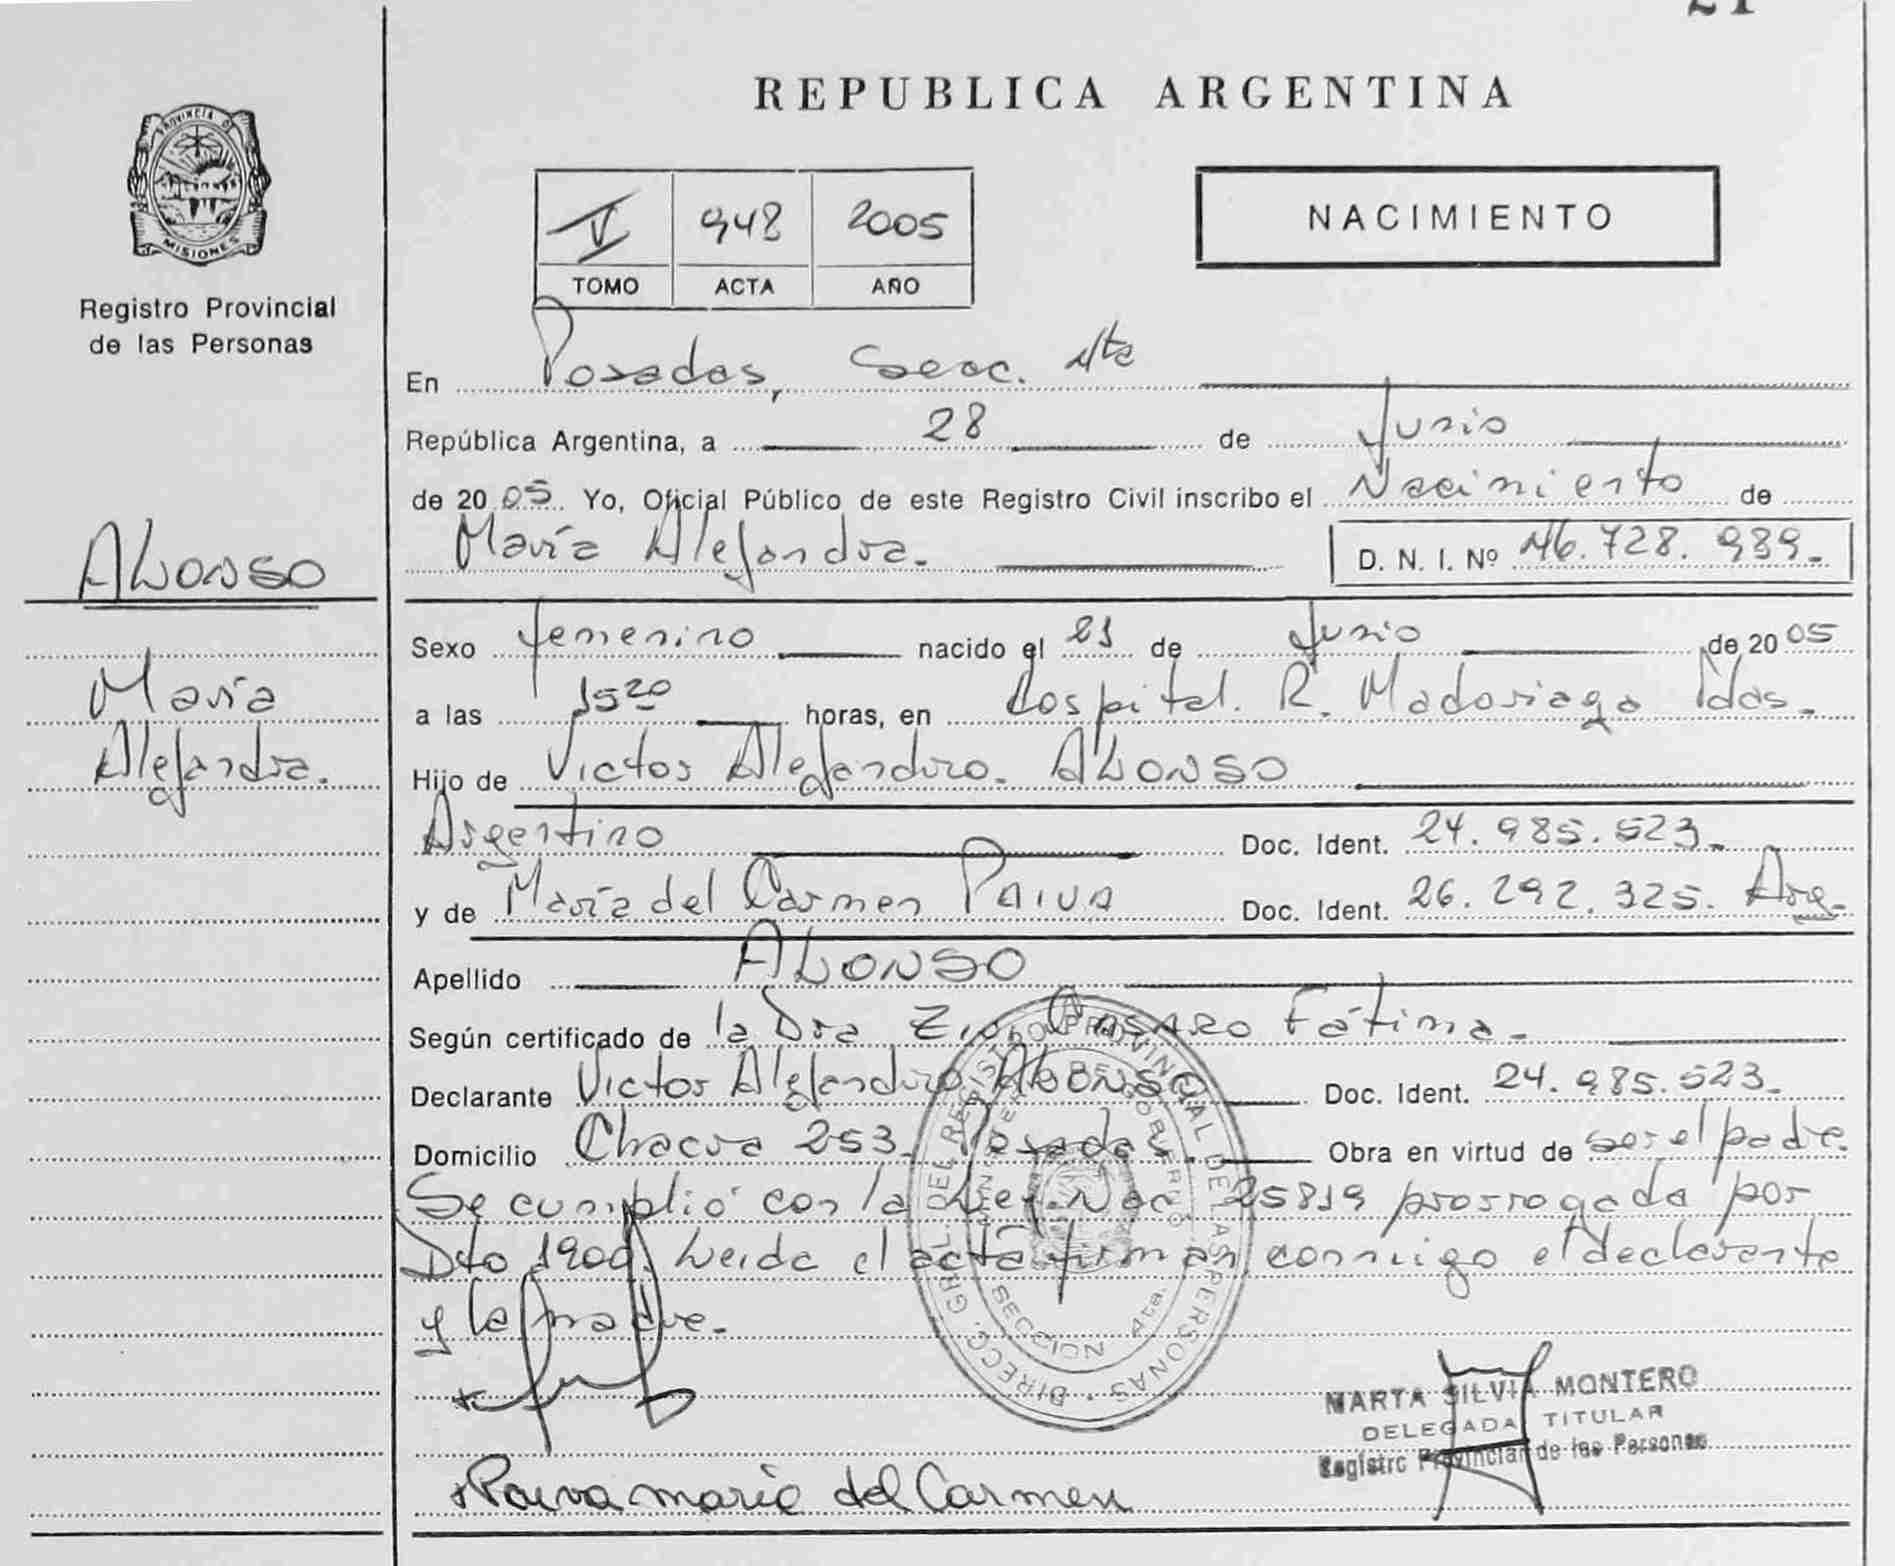 21
REPUBLICA ARGENTINA
PROVINCIA DE
MISIONES
Registro Provincial
de las Personas
V 948 2005
TOMO ACTA AÑO
NACIMIENTO
En Posadas, Secc. 4ta
República Argentina, a 28 de Junio
de 2005. Yo, Oficial Público de este Registro Civil inscribo el Nacimiento de
María Alejandra. D. N. I. Nº 46.728.989.
ALONSO
María
Alejandra.
Sexo femenino nacido el 21 de Junio de 2005
a las 1520 horas, en Hospital. R. Madariaga Pdas.
Hijo de Victor Alejandro. ALONSO
Argentino Doc. Ident. 24.985.523.
y de María del Carmen PAIVA Doc. Ident. 26.292.325. Arg.
Apellido ALONSO
Según certificado de la Dra Fátima.
Declarante Victor Alejandro ALONSO Doc. Ident. 24.985.523.
Domicilio Chacra 253. Posadas. Obra en virtud de ser el padre.
Se cumplió con la Ley. Nac. 25819 prorrogada por
Dto 1900. Leida el acta firman conmigo el declarante
y la madre.
DIRECC. GRL. DEL REGISTRO PROVINCIAL DE LAS PERSONAS
SECCION 4ta.
MARTA SILVIA MONTERO
DELEGADA TITULAR
Registro Provincial de las Personas
Paiva maria del Carmen